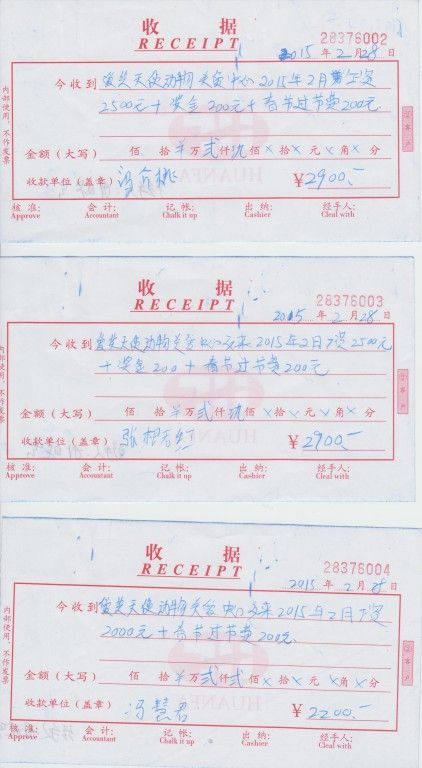 收 据
RECEIPT
28376002
2015 年 2 月 28 日
今收到 爱芙天使动物关爱中心 2015年2月工资
2500元 + 奖金 200元 + 春节过节费 200元
金额（大写） 佰 拾 万 贰 仟 玖 佰 × 拾 × 元 × 角 × 分
收款单位（盖章） ¥ 2900.—
核 准: 会 计: 记 帐: 出 纳: 经手人:
Approve Accountant Chalk it up Cashier Cleal with
内部使用，不作发票
②客户
HUANFA
收 据
RECEIPT
28376003
2015 年 2 月 28 日
今收到 爱芙天使动物关爱中心 2015年2月工资 2500元
+ 奖金 200 + 春节过节费 200元
金额（大写） 佰 拾 万 贰 仟 玖 佰 × 拾 × 元 × 角 × 分
收款单位（盖章） ¥ 2900.—
核 准: 会 计: 记 帐: 出 纳: 经手人:
Approve Accountant Chalk it up Cashier Cleal with
内部使用，不作发票
②客户
HUANFA
收 据
RECEIPT
28376004
2015 年 2 月 28 日
今收到 爱芙天使动物关爱中心 2015年2月工资
2000元 + 春节过节费 200元
金额（大写） 佰 拾 万 贰 仟 贰 佰 × 拾 × 元 × 角 × 分
收款单位（盖章） 冯慧君 ¥ 2200.—
核 准: 会 计: 记 帐: 出 纳: 经手人:
Approve Accountant Chalk it up Cashier Cleal with
内部使用，不作发票
②客户
HUANFA